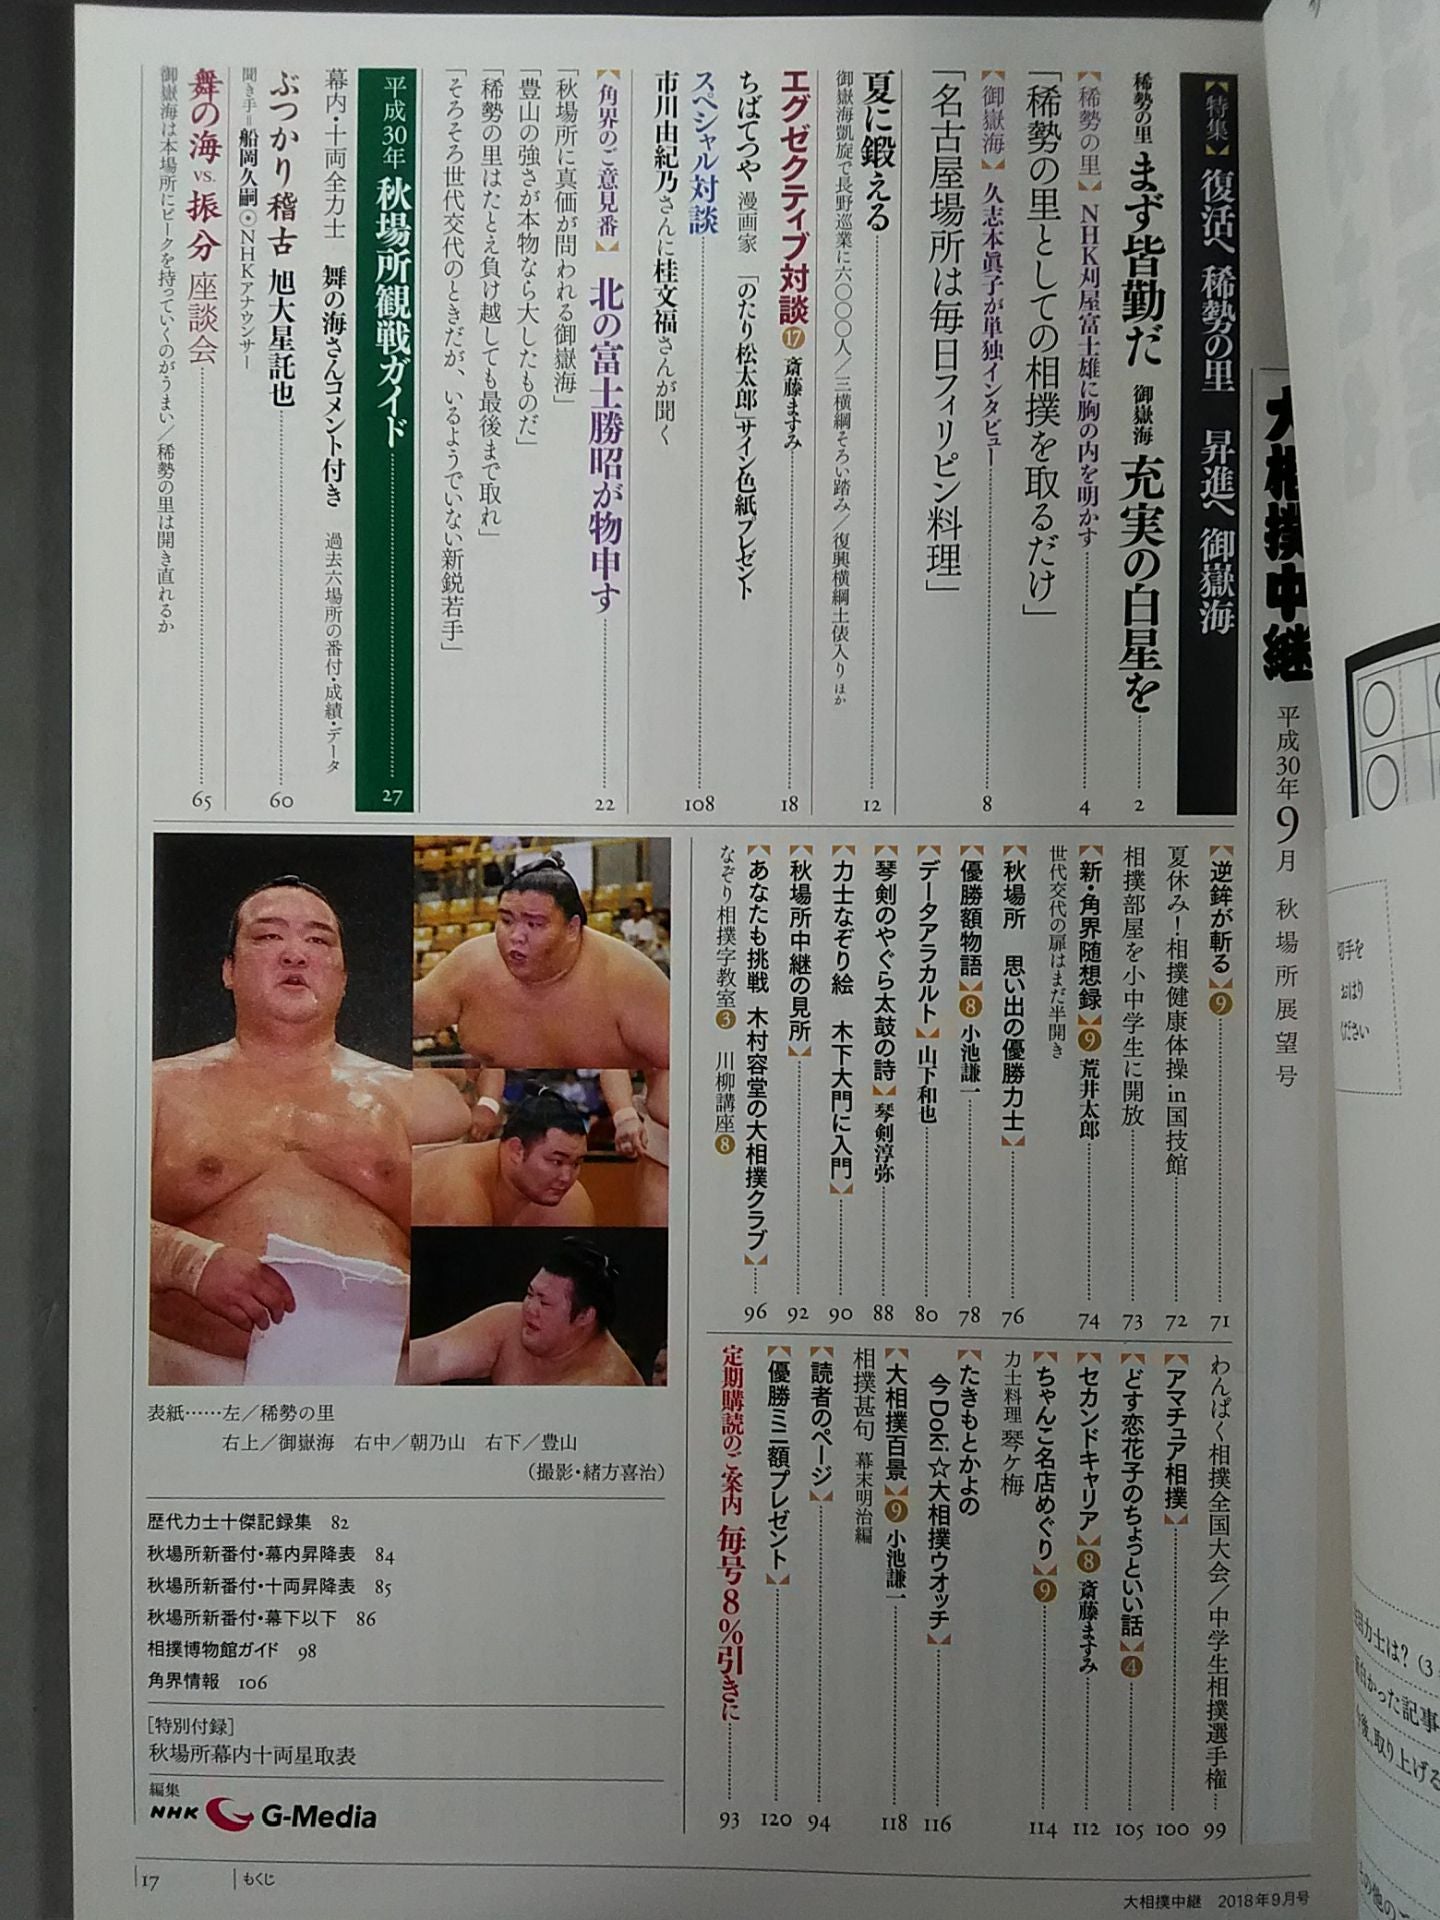 大相撲中継 平成30年9月 秋場所展望号
【特集】復活へ 稀勢の里 昇進へ 御嶽海
稀勢の里 まず皆勤だ 御嶽海 充実の白星を……2
【稀勢の里】NHK刈屋富士雄に胸の内を明かす……4
「稀勢の里としての相撲を取るだけ」
【御嶽海】久志本眞子が単独インタビュー……8
「名古屋場所は毎日フィリピン料理」
夏に鍛える……12
御嶽海凱旋で長野巡業に六〇〇〇人/三横綱そろい踏み/復興横綱土俵入り ほか
エグゼクティブ対談⑰ 斎藤ますみ……18
ちばてつや 漫画家 「のたり松太郎」サイン色紙プレゼント
スペシャル対談……108
市川由紀乃さんに桂文福さんが聞く
【角界のご意見番】北の富士勝昭が物申す……22
「秋場所に真価が問われる御嶽海」
「豊山の強さが本物なら大したものだ」
「稀勢の里はたとえ負け越しても最後まで取れ」
「そろそろ世代交代のときだが、いるようでいない新鋭若手」
平成30年 秋場所観戦ガイド……27
幕内・十両全力士 舞の海さんコメント付き 過去六場所の番付・成績・データ
ぶつかり稽古 旭大星託也……60
聞き手=船岡久嗣⊙NHKアナウンサー
舞の海 vs. 振分 座談会……65
御嶽海は本場所にピークを持っていくのがうまい/稀勢の里は開き直れるか
【逆鉾が斬る】⑨……71
夏休み!相撲健康体操in国技館……72
相撲部屋を小中学生に開放……73
【新・角界随想録】⑨ 荒井太郎……74
世代交代の扉はまだ半開き
【秋場所 思い出の優勝力士】……76
【優勝額物語】⑧ 小池謙一……78
【データアラカルト】山下和也……80
【琴剣のやぐら太鼓の詩】琴剣淳弥……88
【力士なぞり絵 木下大門に入門】……90
【秋場所中継の見所】……92
【あなたも挑戦 木村容堂の大相撲クラブ】……96
なぞり相撲字教室③ 川柳講座⑧
わんぱく相撲全国大会/中学生相撲選手権……99
【アマチュア相撲】……100
【どす恋花子のちょっといい話】④……105
【セカンドキャリア】⑧ 斎藤ますみ……112
【ちゃんこ名店めぐり】⑨……114
力士料理 琴ケ梅
【たきもとかよの
今Doki☆大相撲ウオッチ】……116
【大相撲百景】⑨ 小池謙一……118
相撲甚句 幕末明治編
【読者のページ】……94
【優勝ミニ額プレゼント】……120
定期購読のご案内 毎号8%引きに……93
表紙……左/稀勢の里
右上/御嶽海 右中/朝乃山 右下/豊山
(撮影・緒方喜治)
歴代力士十傑記録集 82
秋場所新番付・幕内昇降表 84
秋場所新番付・十両昇降表 85
秋場所新番付・幕下以下 86
相撲博物館ガイド 98
角界情報 106
[特別付録]
秋場所幕内十両星取表
編集
NHK G-Media
17 もくじ
大相撲中継 2018年9月号
切手を
おはり
ください
力士は?(3
かった記事
後、取り上げる